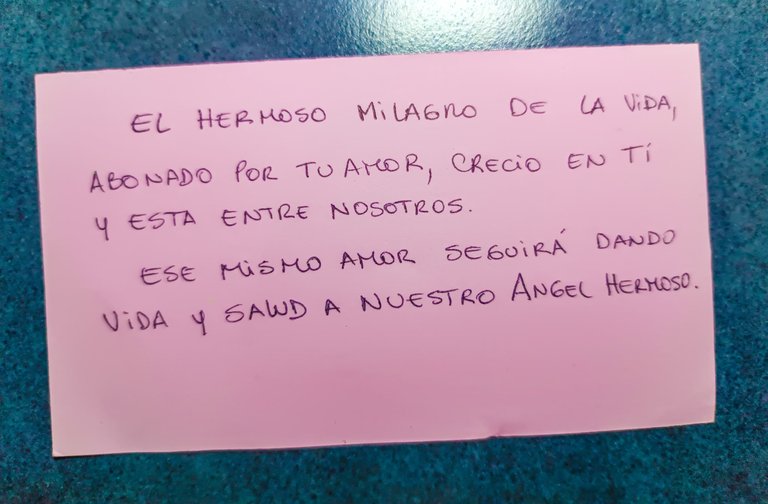 EL HERMOSO MILAGRO DE LA ViDA,
ABONADO POR TU AMOR, CRECiO EN TÍ
Y ESTA ENTRE NOSOTROS.
ESE MiSMO AMOR SEGUIRÁ DANDO
ViDA Y SALUD A NUESTRO ANGEL HERMOSO.